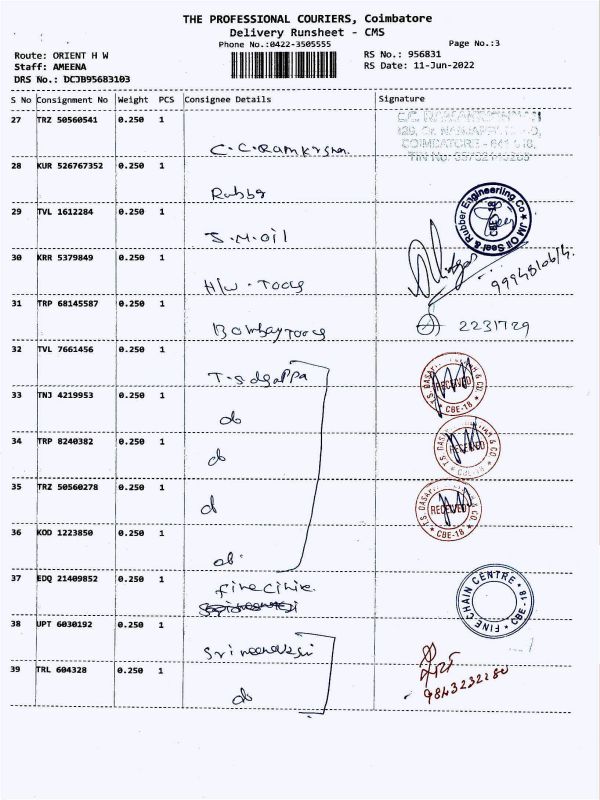 THE PROFESSIONAL COURIERS, Coimbatore
Delivery Runsheet - CMS
Phone No.:0422-3505555
Page No.:3
Route: ORIENT H W
RS No.: 956831
Staff: AMEENA
RS Date: 11-Jun-2022
DRS No.: DCJB95683103
S No Consignment No Weight PCS Consignee Details Signature
27 TRZ 50560541 0.250 1
C.C. Ramkrishan.
COIMBATORE - 641 018.
28 KUR 526767352 0.250 1
Rubber
29 TVL 1612284 0.250 1
S.M.Oil
JM Oil Seal & Rubber Engineering Co
30 KRR 5379849 0.250 1
H/W. Tools
31 TRP 68145587 0.250 1
Bombay Tools
2231729
32 TVL 7661456 0.250 1
RECEIVED
CBE-18
33 TNJ 4219953 0.250 1
do
34 TRP 8240382 0.250 1
do
RECEIVED
CBE-18
35 TRZ 50560278 0.250 1
d
RECEIVED
CBE-18
36 KOD 1223850 0.250 1
do
37 EDQ 21409852 0.250 1
FINE CHAIN CENTRE * CBE - 18 *
38 UPT 6030192 0.250 1
Srimeenaksi
39 TRL 604328 0.250 1
do